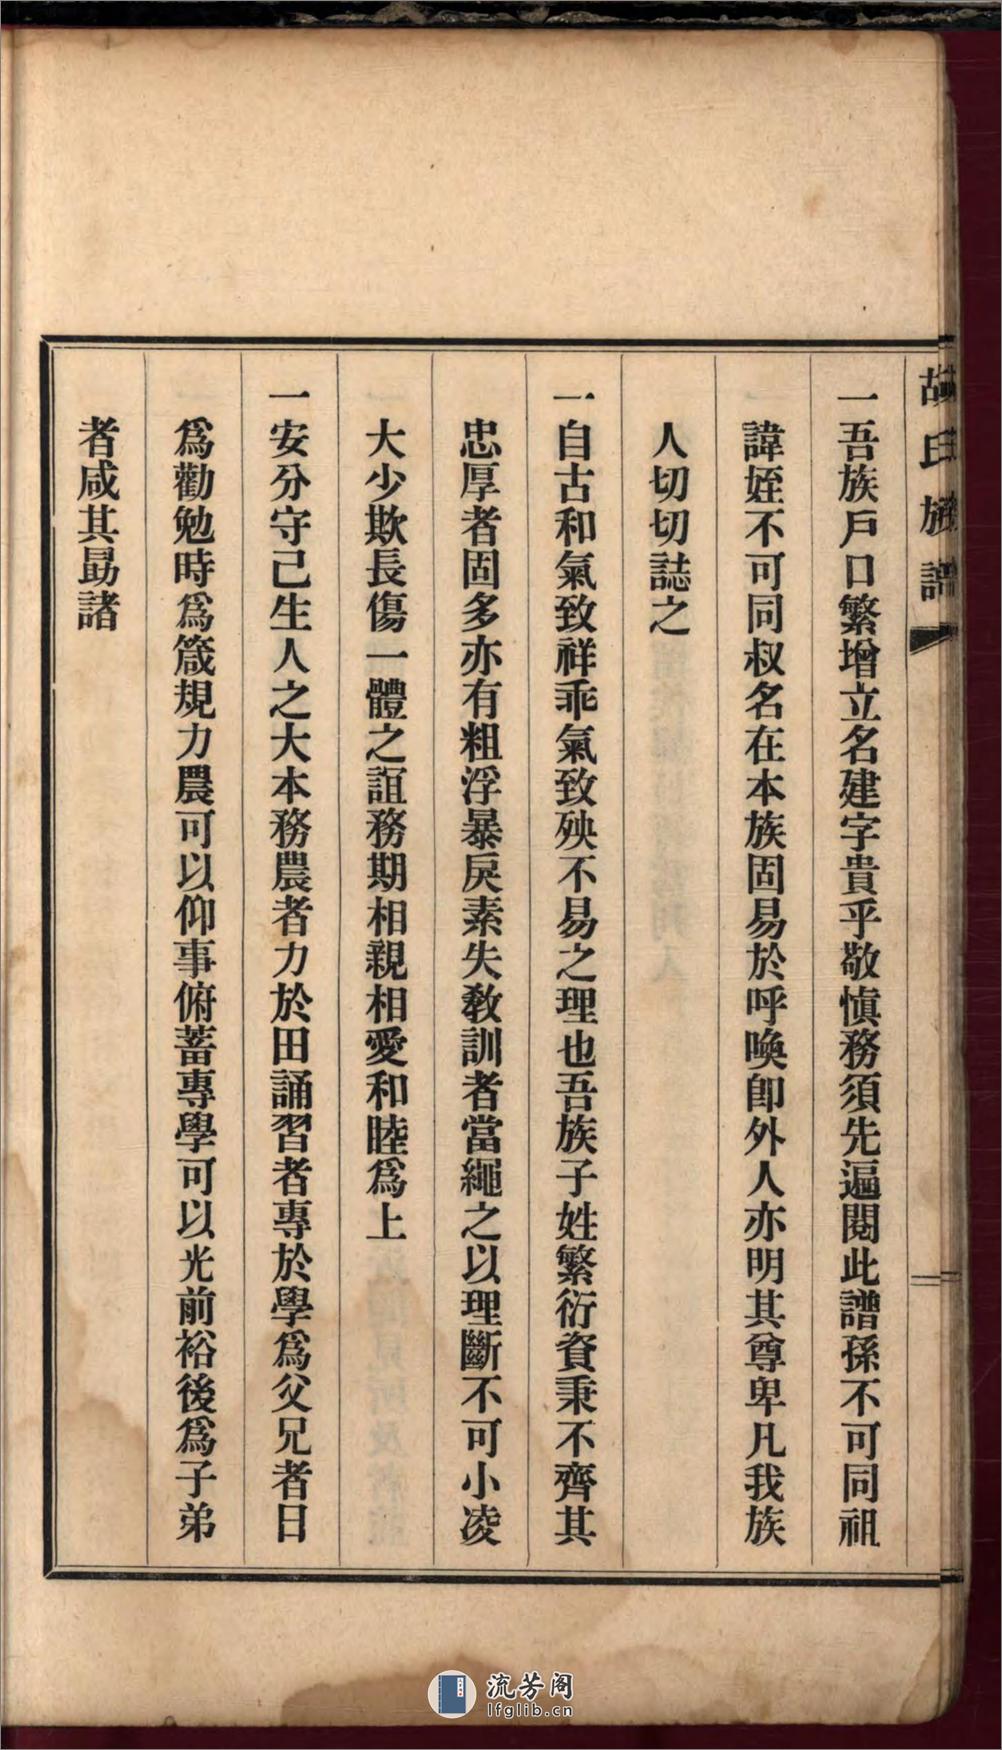 胡氏族譜
一吾族戶口繁增立名建字貴乎敬慎務須先遍閱此譜孫不可同祖
諱姪不可同叔名在本族固易於呼喚卽外人亦明其尊卑凡我族
人切切誌之
一自古和氣致祥乖氣致殃不易之理也吾族子姓繁衍資秉不齊其
忠厚者固多亦有粗浮暴戾素失教訓者當繩之以理斷不可小凌
大少欺長傷一體之誼務期相親相愛和睦爲上
一安分守己生人之大本務農者力於田誦習者專於學爲父兄者日
爲勸勉時爲箴規力農可以仰事俯蓄專學可以光前裕後爲子弟
者咸其勗諸
流芳阁
lfglib.cn